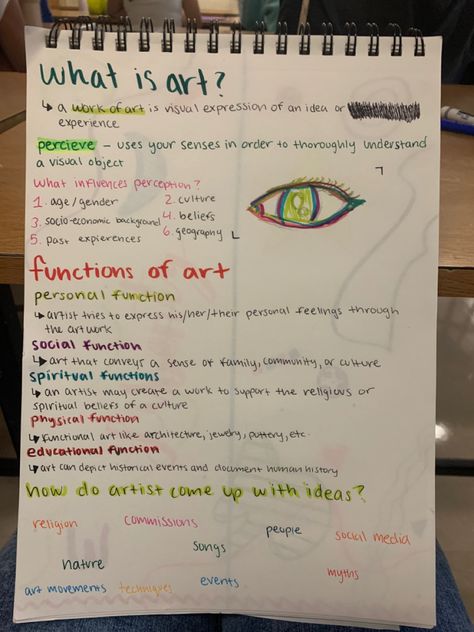 what is art?
↳ a work of art is visual expression of an idea or
experience
percieve – uses your senses in order to thoroughly understand
a visual object
what influences perception?
1. age/gender
2. culture
3. socio-economic background
4. beliefs
5. past expierences
6. geography
functions of art
personal function
↳ artist tries to express his/her/their personal feelings through
the art work
social function
↳ art that conveys a sense of family, community, or culture
spiritual functions
↳ an artist may create a work to support the religious or
spiritual beliefs of a culture
physical function
↳ functional art like architecture, jewelry, pottery, etc.
educational function
↳ art can depict historical events and document human history
how do artist come up with ideas?
religion
commissions
people
social media
songs
nature
myths
art movements
techniques
events